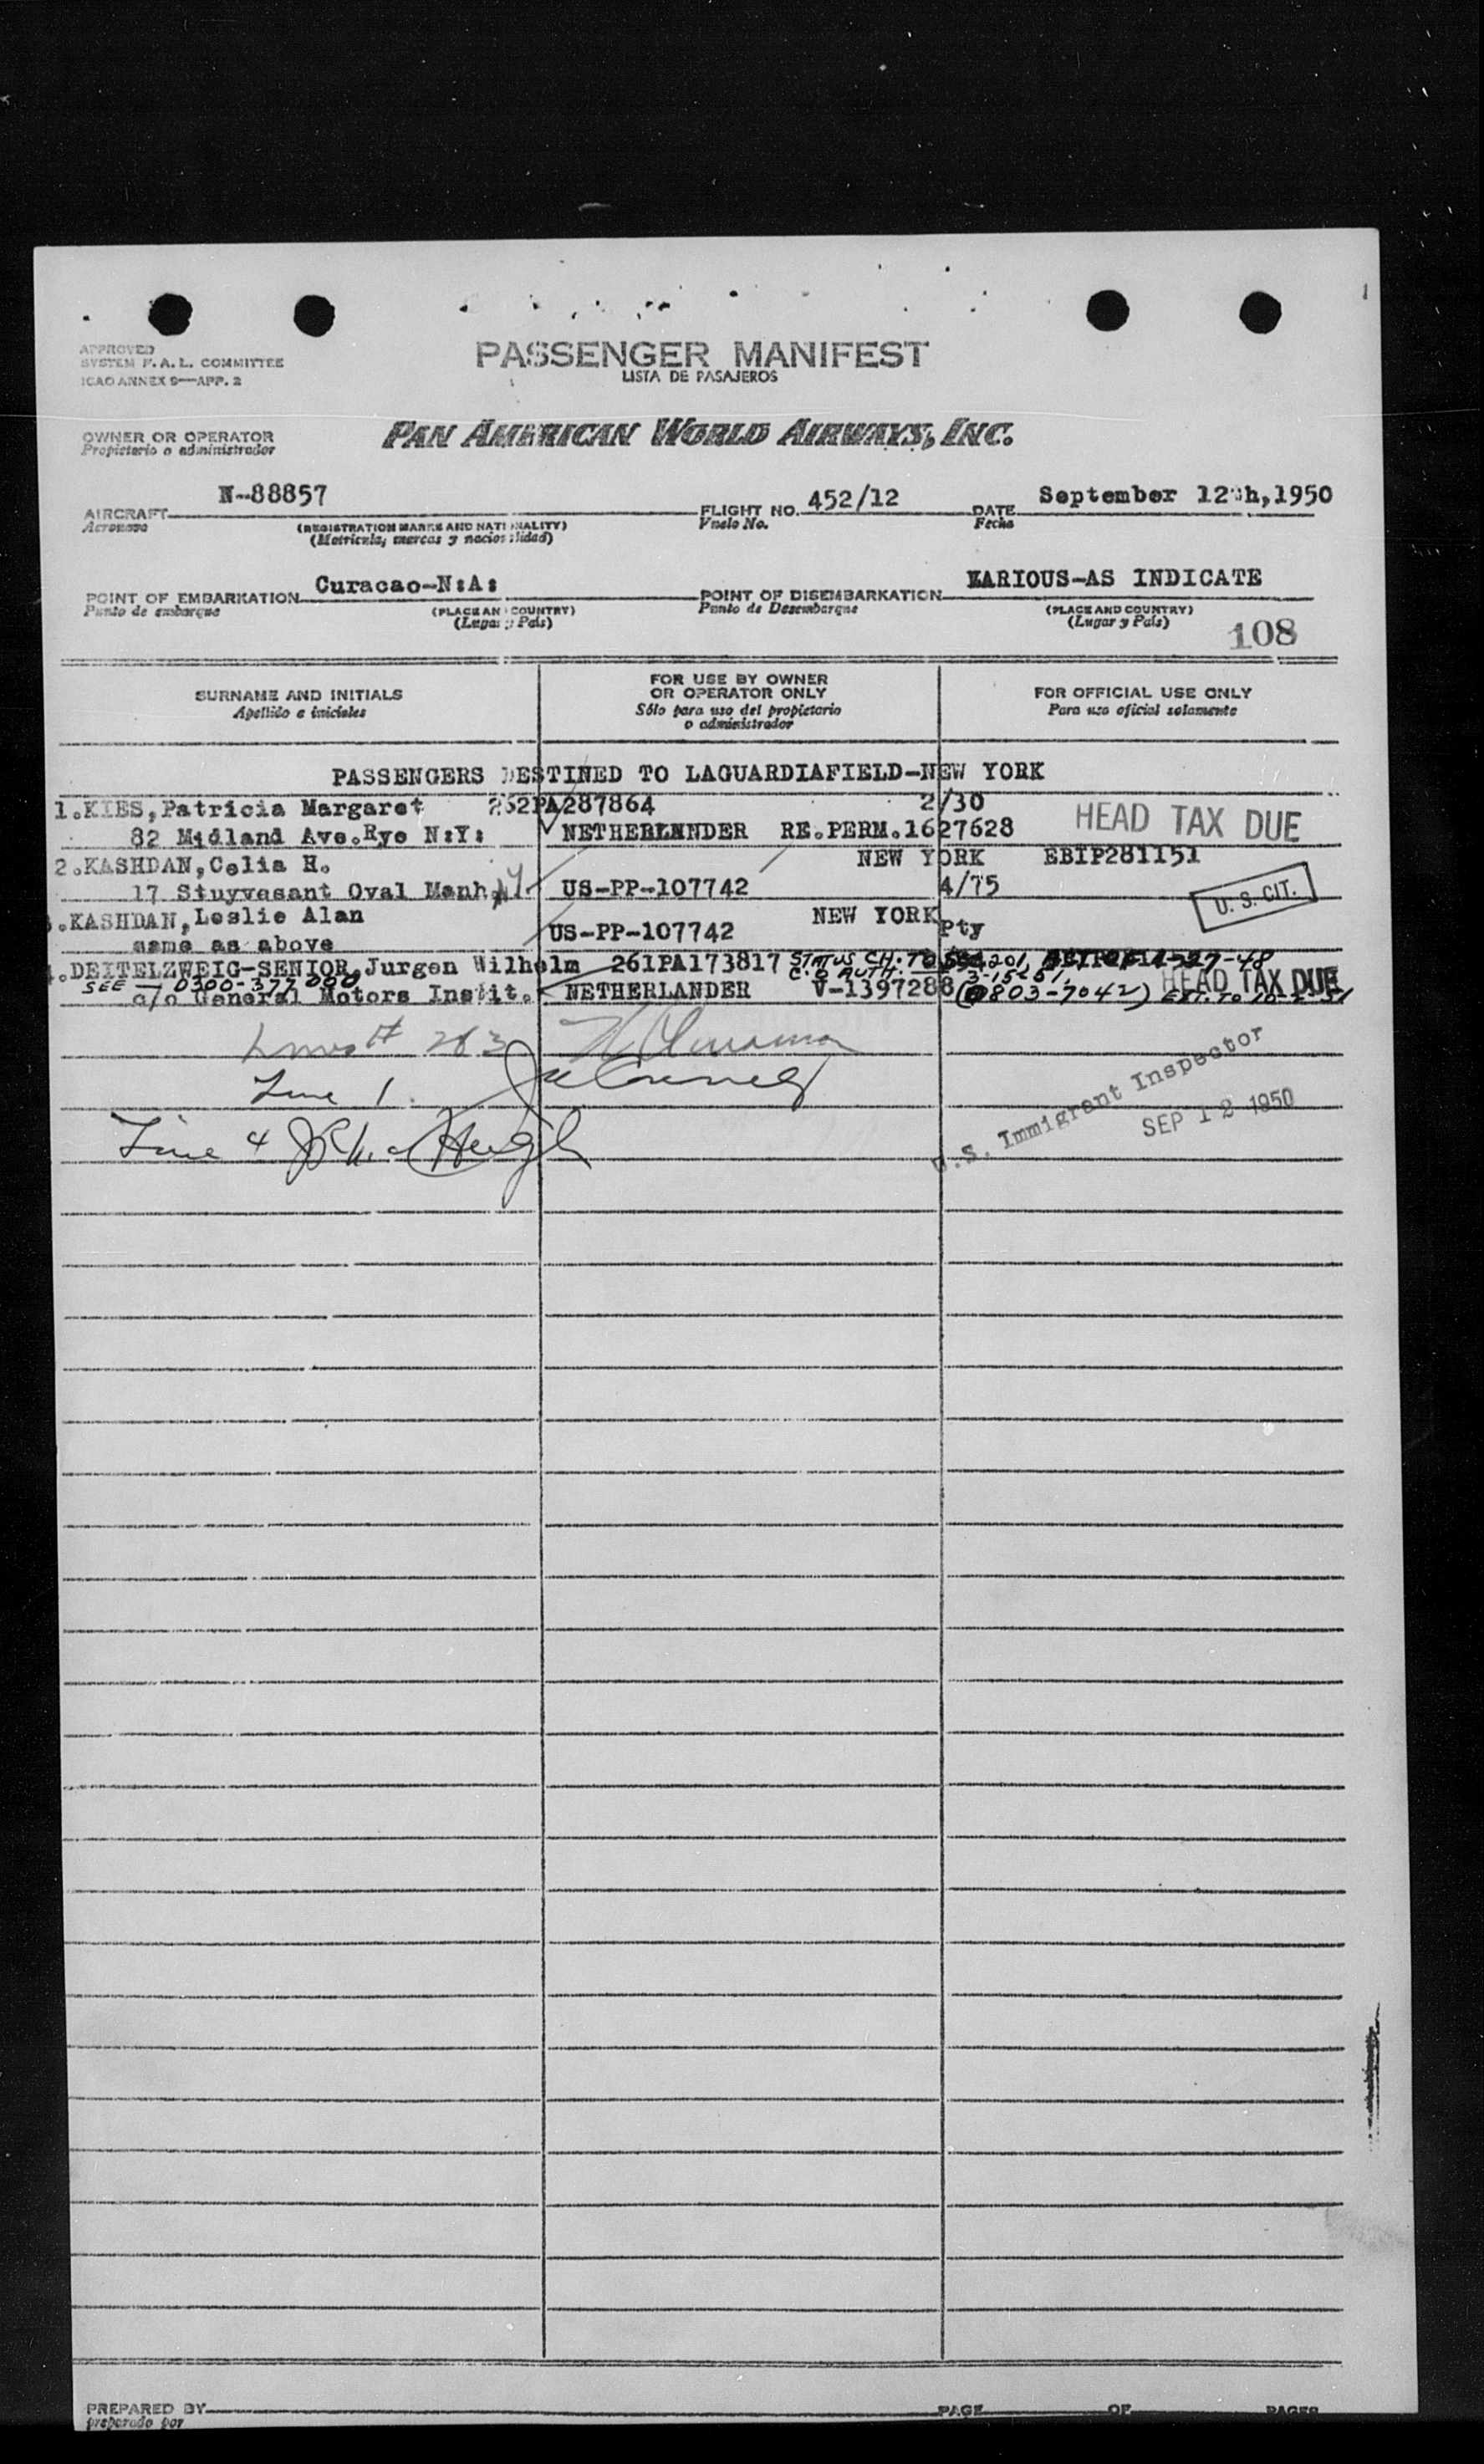 APPROVED
SYSTEM F.A.L. COMMITTEE
ICAO ANNEX 9—APP. 2
PASSENGER MANIFEST
LISTA DE PASAJEROS
OWNER OR OPERATOR
Propietario o administrador
PAN AMERICAN WORLD AIRWAYS, INC.
AIRCRAFT N-88857
Aeronave
(REGISTRATION MARKS AND NATIONALITY)
(Matricula, marcas y nacionalidad)
FLIGHT NO. 452/12
Vuelo No.
DATE September 12th,1950
Fecha
POINT OF EMBARKATION Curacao-N:A:
Punto de embarque
(PLACE AND COUNTRY)
(Lugar y País)
POINT OF DISEMBARKATION VARIOUS-AS INDICATE
Punto de Desembarque
(PLACE AND COUNTRY)
(Lugar y País)
108
SURNAME AND INITIALS
Apellido e iniciales
FOR USE BY OWNER
OR OPERATOR ONLY
Sólo para uso del propietario
o administrador
FOR OFFICIAL USE ONLY
Para uso oficial solamente
PASSENGERS DESTINED TO LAGUARDIAFIELD-NEW YORK
1.KIES,Patricia Margaret 252PA287864 2/30
82 Midland Ave.Rye N:Y: NETHERLANDER RE.PERM.1627628 HEAD TAX DUE
2.KASHDAN,Celia H. NEW YORK EBIP281151
17 Stuyvesant Oval Manh. NY US-PP-107742 4/75 U. S. CIT.
.KASHDAN,Leslie Alan NEW YORK
same as above US-PP-107742 Pty
.DEITELZWEIG-SENIOR,Jurgen Wilhelm 261PA173817 STATUS CH. TO
SEE - 0300-377000 C.O AUTH. 3-15-51
c/o General Motors Instit. NETHERLANDER V-1397288 (0803-7042) EXT. TO HEAD TAX DUE
Line 1.
Line 4
U.S. Immigrant Inspector
SEP 12 1950
PREPARED BY
preparado por
PAGE OF PAGES